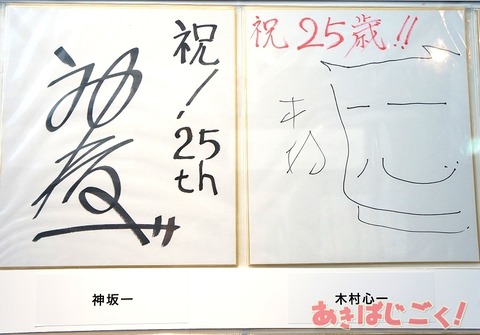 祝!
25
th
神坂一
祝25歳!!
木村
神坂一
木村心一
あきばじごく!